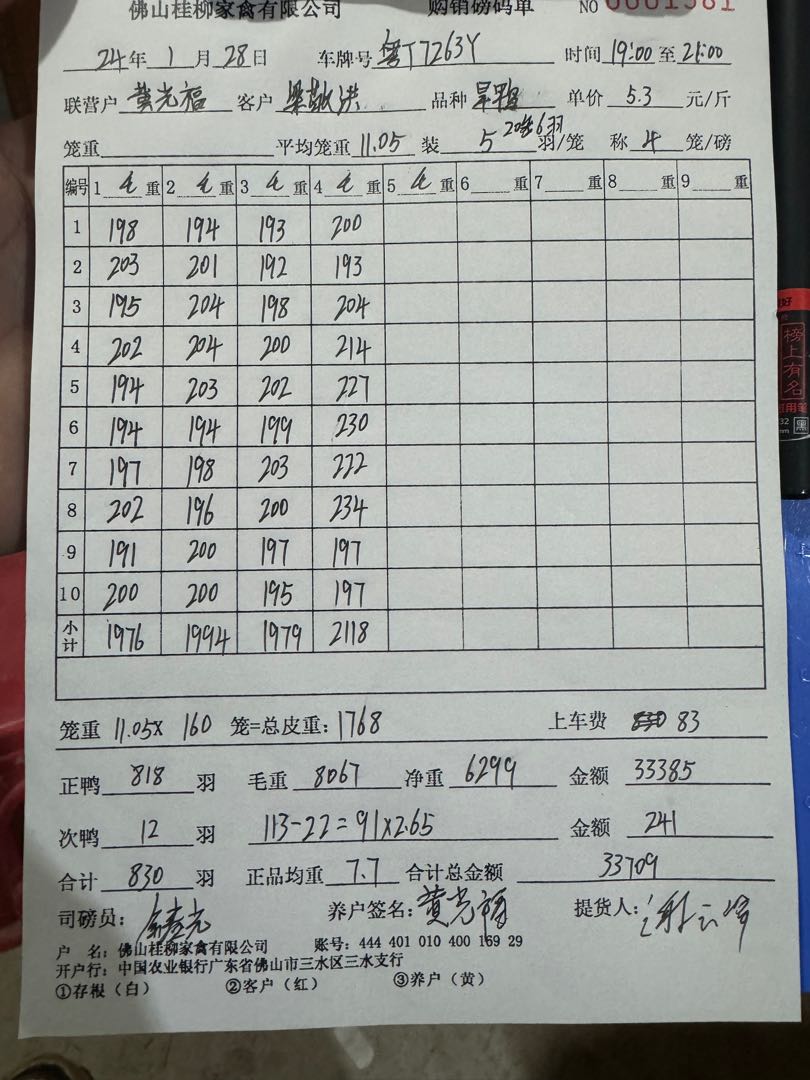 佛山桂柳家禽有限公司 购销磅码单 NO 0001581
24年 1月 28日 车牌号 粤T7263Y 时间 19:00 至 21:00
联营户 黄光福 客户 梁敬洪 品种 旱鸭 单价 5.3 元/斤
笼重 平均笼重 11.05 装 5 20笼6羽 羽/笼 称 4 笼/磅
编号 1 毛 重 2 毛 重 3 毛 重 4 毛 重 5 毛 重 6 重 7 重 8 重 9 重
1 198 194 193 200
2 203 201 192 193
3 195 204 198 204
4 202 204 200 214
5 194 203 202 227
6 194 194 199 230
7 197 198 203 222
8 202 196 200 234
9 191 200 197 197
10 200 200 195 197
小计 1976 1994 1979 2118
笼重 11.05× 160 笼=总皮重: 1768 上车费 83
正鸭 818 羽 毛重 8067 净重 6299 金额 33385
次鸭 12 羽 113-22=91×2.65 金额 241
合计 830 羽 正品均重 7.7 合计总金额 33709
司磅员: 养户签名: 黄光福 提货人:
户 名: 佛山桂柳家禽有限公司 账号: 444 401 010 400 169 29
开户行: 中国农业银行广东省佛山市三水区三水支行
①存根（白） ②客户（红） ③养户（黄）
榜上有名